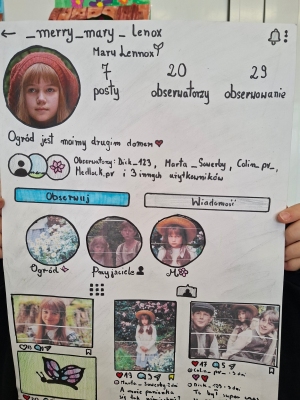 _merry_mary_ lenox
Mary Lennox
7 20 29
posty obserwatorzy obserwowanie
Ogród jest moim drugim domem
Obserwatorzy: Dick_123, Marta_Sowerby, Colin_pr_,
Medlock.pr i 3 innych użytkowników
Obserwuj Wiadomości
Ogród Przyjaciele Ja
13 5
Marta_Sowerby
A moje
17 5
Colin_pr_
Dick_123
To był super